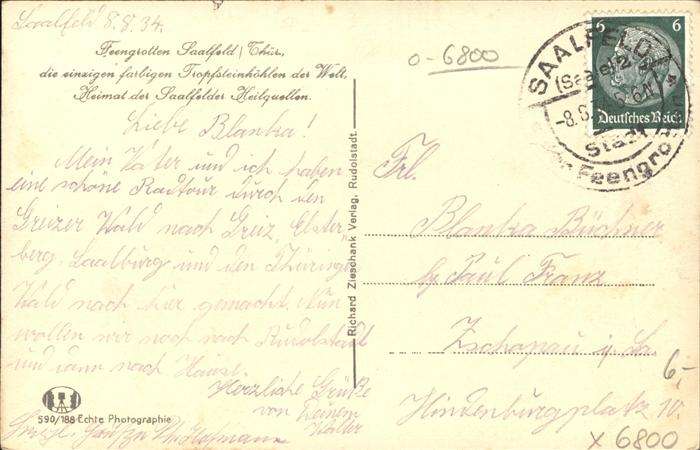 Saalfeld 8.8.34.
Feengrotten Saalfeld/Thür.,
die einzigen farbigen Tropfsteinhöhlen der Welt,
Heimat der Saalfelder Heilquellen.
Liebe Blanka!
Mein Vater und ich haben
eine schöne Radtour durch den
Greizer Wald nach Greiz, Elster-
berg, Saalburg und den Thüringer
Wald nach hier gemacht. Nun
wollen wir noch nach Rudolstadt
und dann nach Hause.
Herzliche Grüße
von Deinem
590/188 Echte Photographie
Hofmann
Richard Zieschank Verlag, Rudolstadt.
0-6800
6 6
Deutsches Reich
SAALFELD
(Saale) 2
-8.8.
Stadt
Feengro
Frl.
Blanka Büchner
b/ Paul Franz
Zschopau i. Sa.
Hindenburgplatz 10.
6,-
x 6800